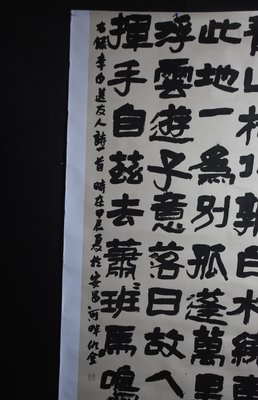 青山橫北郭白水繞東
此地一爲別孤蓬萬里
浮雲遊子意落日故人
揮手自茲去蕭班馬鳴
右錄李白送友人詩一首時在甲辰夏於安昌河畔